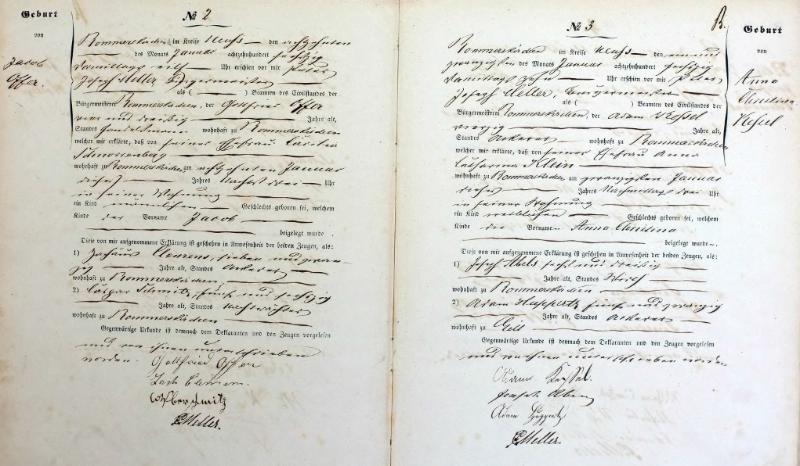 Geburt
von
Jacob
Offer.
№ 2
Rommerskirchen im Kreise Neuss den achtzehnten
des Monats Januar achtzehnhundert sechzig
Vormittags elf Uhr erschien vor mir Peter
Joseph Meller Bürgermeister
als Beamten des Civilstandes der
Bürgermeisterei Rommerskirchen, der Gottfried Offer
vier und dreißig Jahre alt,
Standes Handelsmann wohnhaft zu Rommerskirchen
welcher mir erklärte, daß von seiner Ehefrau
wohnhaft zu Rommerskirchen am achtzehnten Januar
dieses Jahres Uhr
in seiner Wohnung
ein Kind männlichen Geschlechts geboren sei, welchem
Kinde der Vorname Jacob
beigelegt wurde.
Diese von mir aufgenommene Erklärung ist geschehen in Anwesenheit der beiden Zeugen, als:
1) sieben und zwan-
zig Jahre alt, Standes Ackerer
wohnhaft zu Rommerskirchen
2) Caspar Schmitz, fünf und sechzig
Jahre alt, Standes
wohnhaft zu Rommerskirchen
Gegenwärtige Urkunde ist demnach dem Deklaranten und den Zeugen vorgelesen
und von ihnen unterschrieben
worden. Gottfried Offer
Schmitz
Meller.
№ 3
B.
Geburt
von
Anna
Christina
Kessel
Rommerskirchen im Kreise Neuss den ein und
zwanzigsten des Monats Januar achtzehnhundert sechzig
Vormittags zehn Uhr erschien vor mir Peter
Joseph Meller, Bürgermeister
als Beamten des Civilstandes der
Bürgermeisterei Rommerskirchen, der Adam Kessel
vierzig Jahre alt,
Standes Ackerer wohnhaft zu Rommerskirchen
welcher mir erklärte, daß von seiner Ehefrau Anna
Catharina Klein
wohnhaft zu Rommerskirchen am zwanzigsten Januar
dieses Jahres Nachmittags drei Uhr
in seiner Wohnung
ein Kind weiblichen Geschlechts geboren sei, welchem
Kinde die Vornamen Anna Christina
beigelegt wurden.
Diese von mir aufgenommene Erklärung ist geschehen in Anwesenheit der beiden Zeugen, als:
1) Joseph sechs und dreißig
Jahre alt, Standes Wirth
wohnhaft zu Rommerskirchen
2) Adam Huppertz fünf und zwanzig
Jahre alt, Standes Ackerer
wohnhaft zu Gill
Gegenwärtige Urkunde ist demnach dem Deklaranten und den Zeugen vorgelesen
und von ihnen unterschrieben worden
Adam Kessel.
Joseph
Adam Huppertz
Meller.